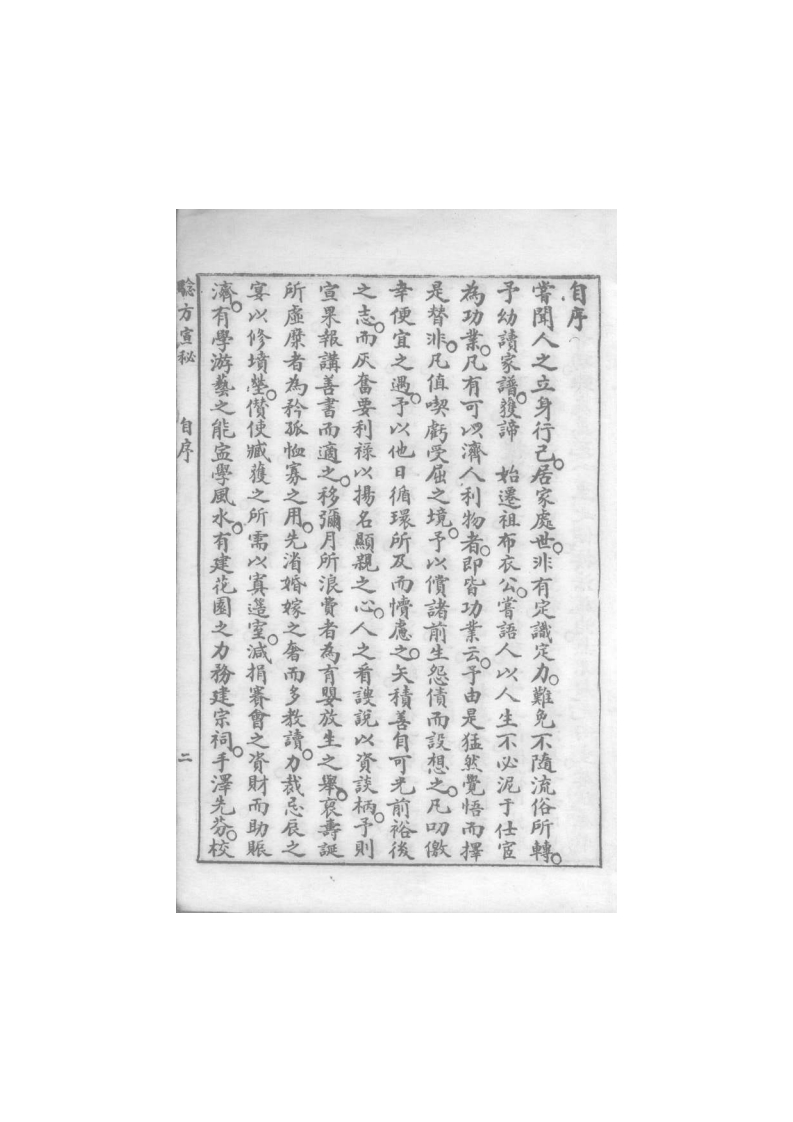 自序
嘗聞人之立身行己。居家處世。非有定識定力。難免不隨流俗所轉。
予幼讀家譜。獲諦　始遷祖布衣公。嘗語人以人生不必泥于仕宦
為功業。凡有可以濟人利物者。即皆功業云。予由是猛然覺悟而擇
是替非。凡值喫虧受屈之境。予以償諸前生怨債而設想之。凡叨儌
幸便宜之遇。予以他日循環所及而懵慮之。矢積善自可光前裕後
之志。而仄奮要利祿以揚名顯親之心。人之看諛說以資談柄。予則
宣果報講善書而適之。移彌月所浪費者為育嬰放生之舉。裒壽誕
所虛糜者為矜孤恤寡之用。先消婚嫁之奢而多教讀。力裁忌辰之
宴以修墳塋。儹使臧獲之所需以寘簉室。減捐賽會之資財而助賑
濟。有學游藝之能寍學風水。有建花園之力務建宗祠。手澤先芬。校
驗方宣秘　自序　二